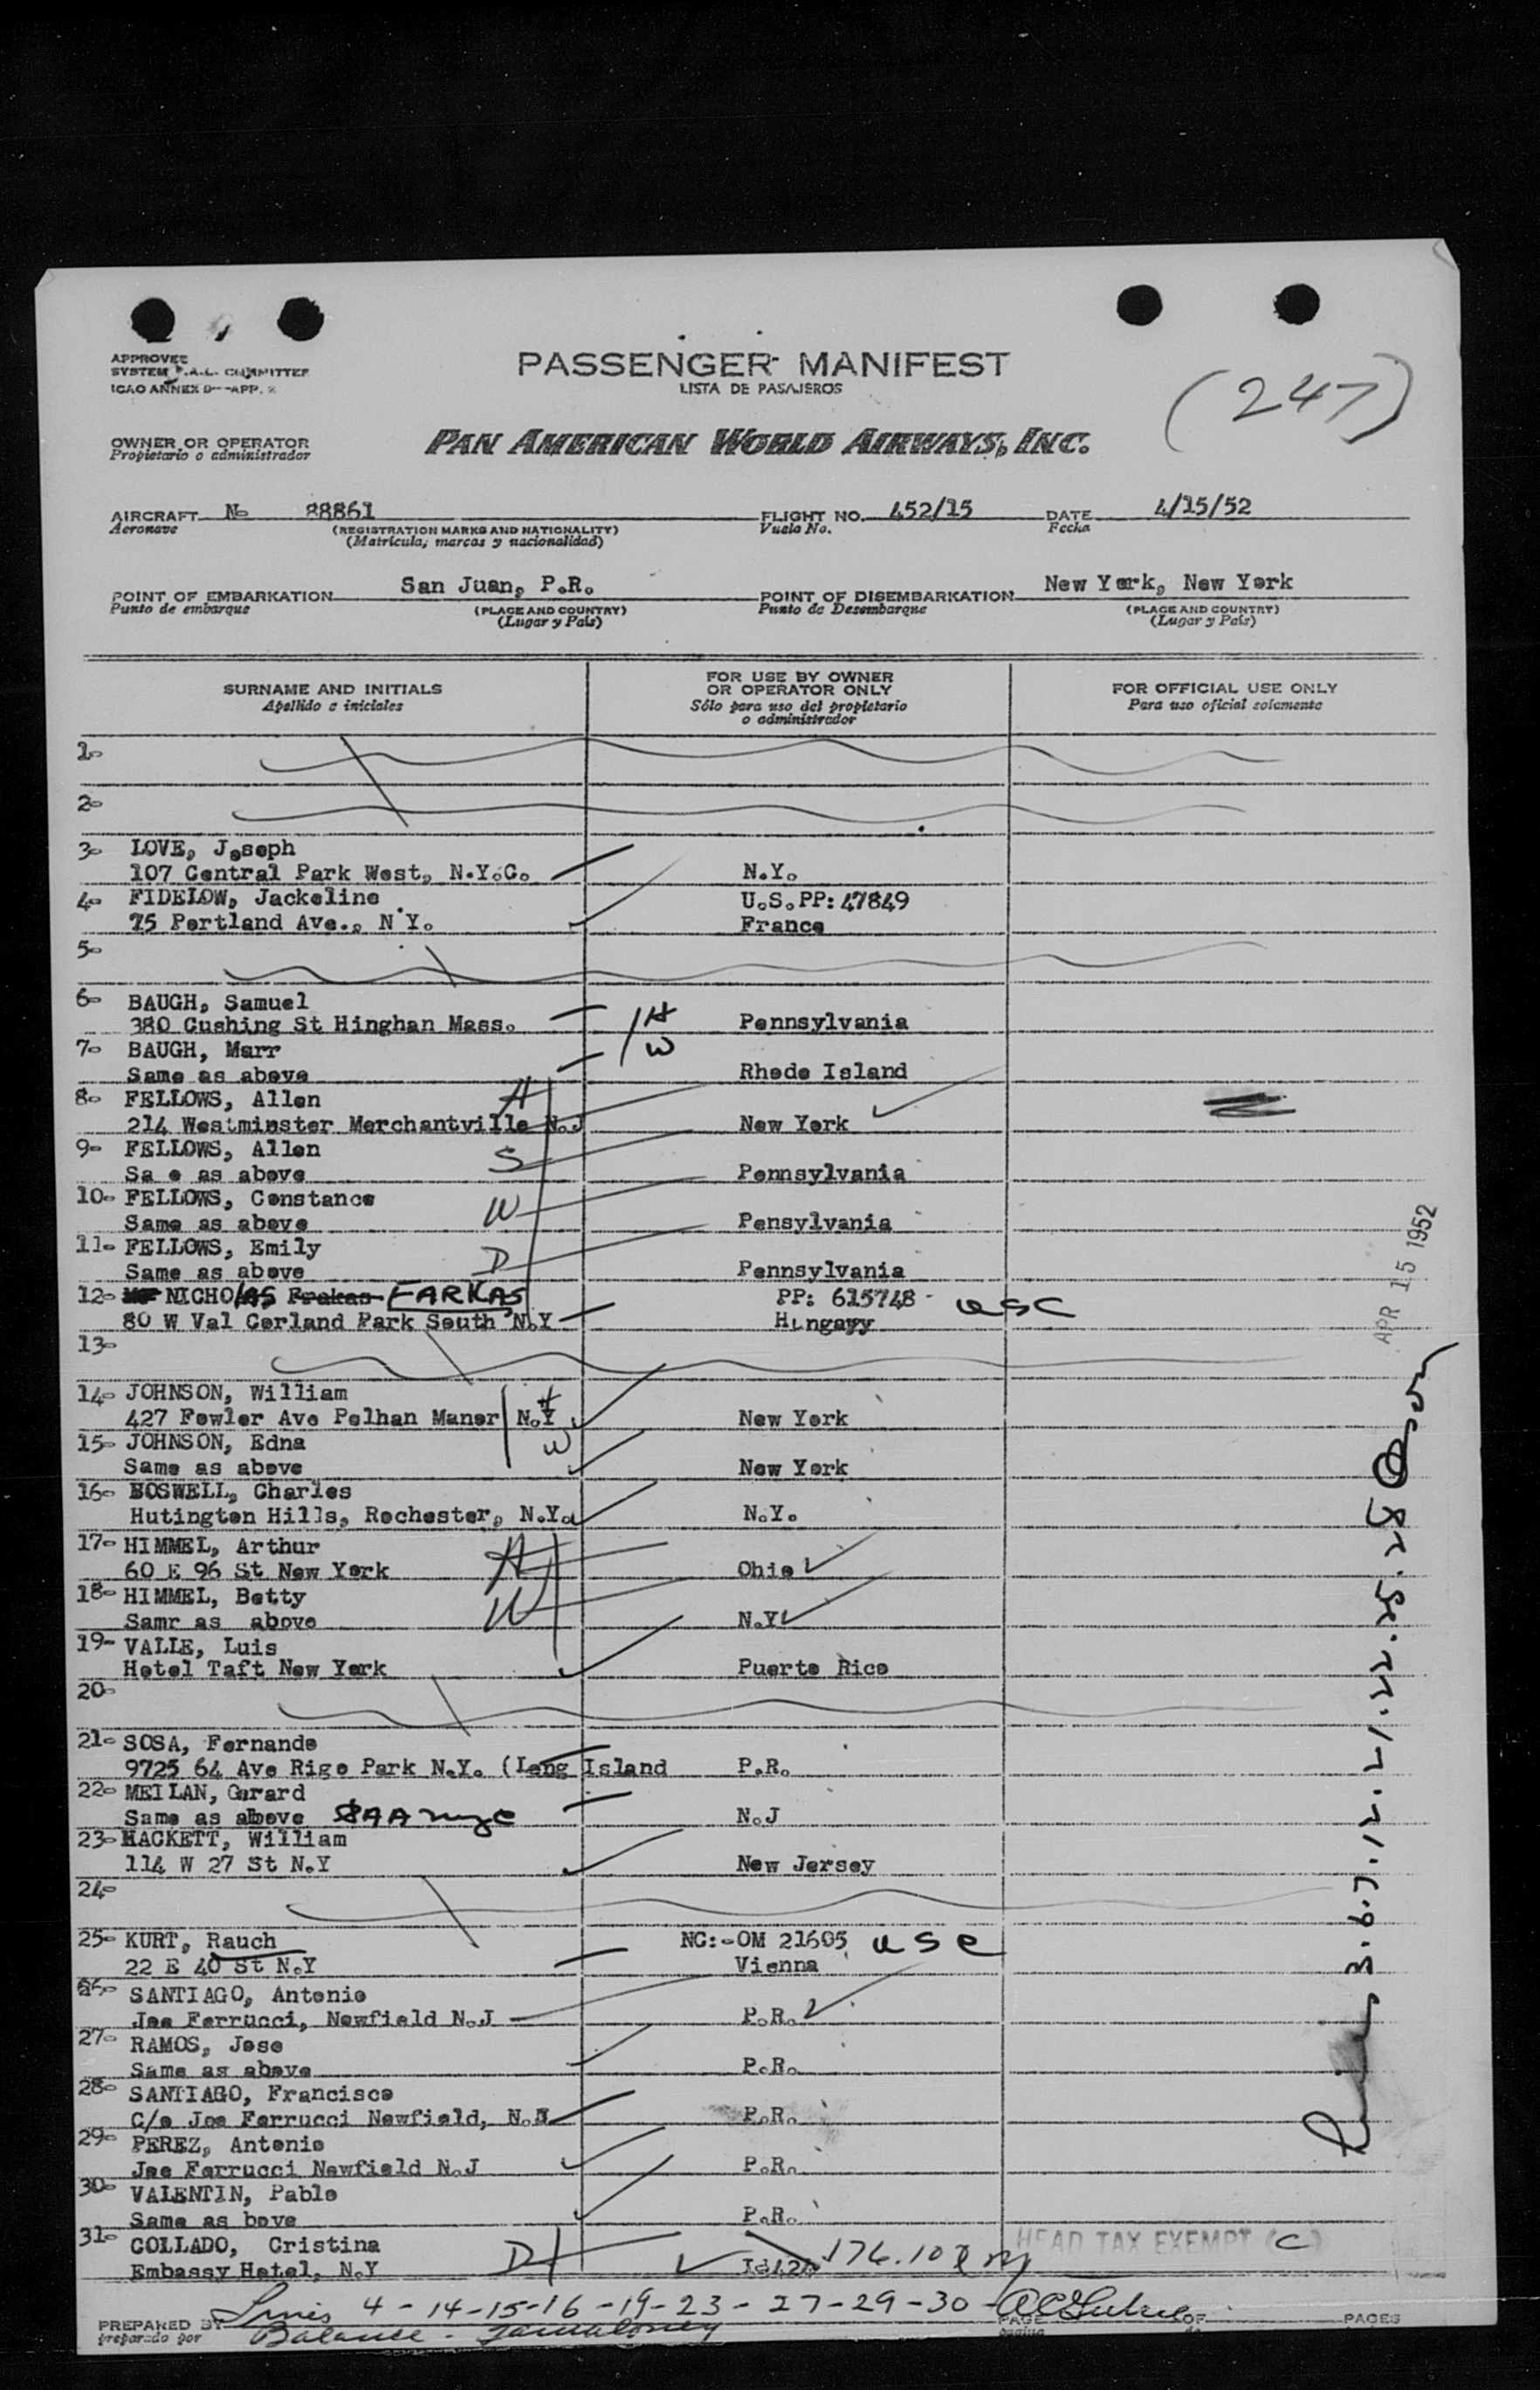 APPROVED
SYSTEM F.A.L. COMMITTEE
ICAO ANNEX 9--APP. 2
PASSENGER MANIFEST
LISTA DE PASAJEROS
(247)
OWNER OR OPERATOR
Propietario o administrador
PAN AMERICAN WORLD AIRWAYS, INC.
AIRCRAFT No 88861 FLIGHT NO. 452/15 DATE 4/15/52
Aeronave (REGISTRATION MARKS AND NATIONALITY) Vuelo No. Fecha
(Matrícula, marcas y nacionalidad)
POINT OF EMBARKATION San Juan, P.R. POINT OF DISEMBARKATION New York, New York
Punto de embarque (PLACE AND COUNTRY) Punto de Desembarque (PLACE AND COUNTRY)
(Lugar y País) (Lugar y País)
SURNAME AND INITIALS FOR USE BY OWNER OR OPERATOR ONLY FOR OFFICIAL USE ONLY
Apellido e iniciales Sólo para uso del propietario o administrador Para uso oficial solamente
1-
2-
3- LOVE, Joseph
107 Central Park West, N.Y.C. N.Y.
4- FIDELOW, Jackeline U.S.PP: 47849
75 Portland Ave., N Y. France
5-
6- BAUGH, Samuel
380 Cushing St Hinghan Mass. H Pennsylvania
7- BAUGH, Marr W
Same as above Rhode Island
8- FELLOWS, Allen H
214 Westminster Merchantville N.J New York
9- FELLOWS, Allen S
Sa e as above Pennsylvania
10- FELLOWS, Constance W
Same as above Pensylvania
11- FELLOWS, Emily D
Same as above Pennsylvania
12- NICHOLAS Frakas FARKAS PP: 615748 - USC
80 W Val Corland Park South N.Y Hungayy
13-
14- JOHNSON, William H
427 Fowler Ave Pelhan Maner N.Y New York
15- JOHNSON, Edna W
Same as above New York
16- BOSWELL, Charles
Hutington Hills, Rochester, N.Y. N.Y.
17- HIMMEL, Arthur H
60 E 96 St New York Ohio
18- HIMMEL, Betty W
Samr as above N.Y
19- VALLE, Luis
Hotel Taft New York Puerto Rico
20-
21- SOSA, Fernando
9725 64 Ave Rigo Park N.Y. (Long Island P.R.
22- MEILAN, Gerard
Same as above N.J
23- HACKETT, William
114 W 27 St N.Y New Jersey
24-
25- KURT, Rauch NC:-OM 21605 USC
22 E 40 St N.Y Vienna
26- SANTIAGO, Antonio
Joe Ferrucci, Newfield N.J P.R.
27- RAMOS, Jose
Same as above P.R.
28- SANTIAGO, Francisco
C/o Joe Ferrucci Newfield, N.J P.R.
29- PEREZ, Antonio
Joe Ferrucci Newfield N.J P.R.
30- VALENTIN, Pablo
Same as bove P.R.
31- COLLADO, Cristina D HEAD TAX EXEMPT (C)
Embassy Hotel, N.Y 176.10
APR 15 1952
3.6.7.12.21.22.25.28
4-14-15-16-19-23-27-29-30-
PREPARED BY Balance - PAGE OF PAGES
preparado por página de